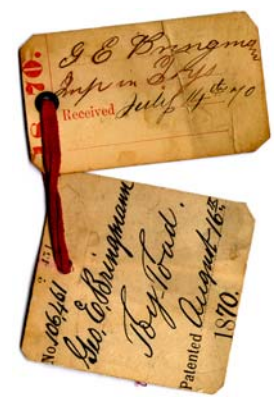 1870.
G E Bringman
Imp in Toys
Received July 14th 70
No. 106,461
Geo. E. Bringmann
Toy Toad.
Patented August 16th
1870.